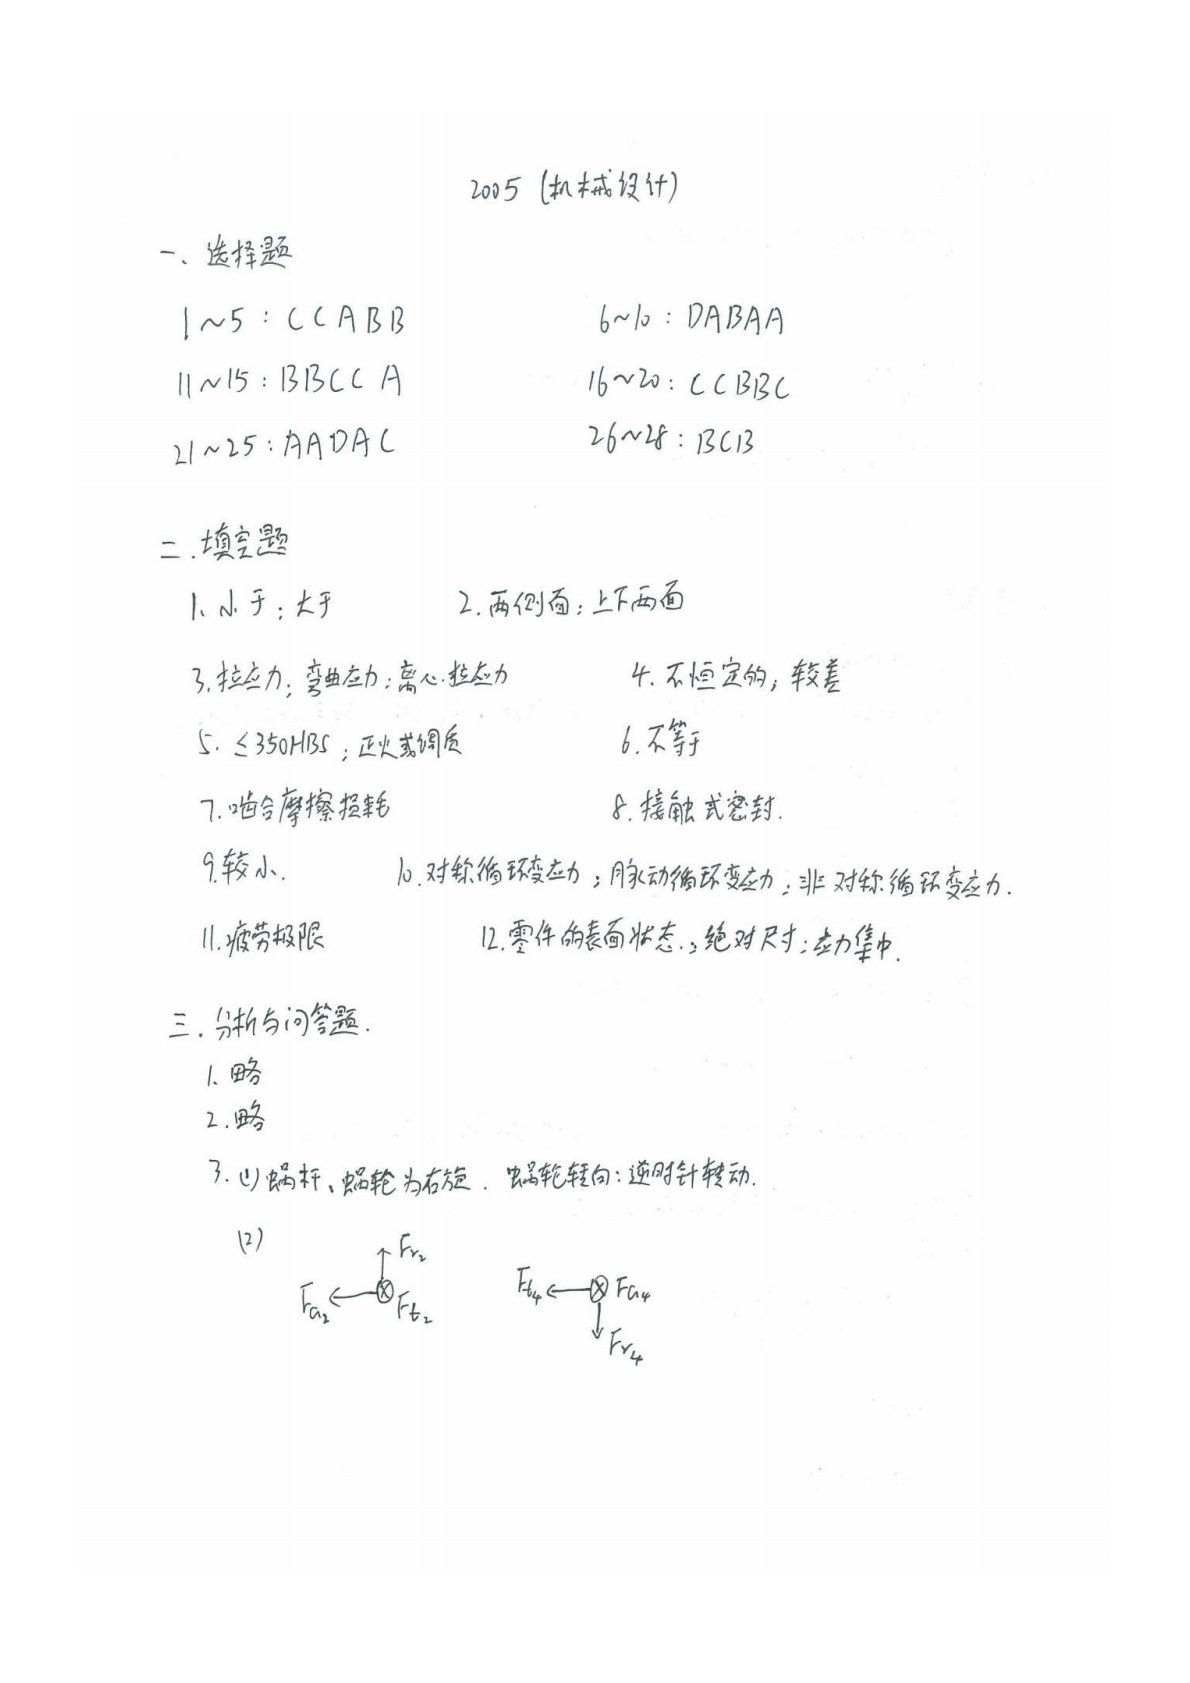 2005 (机械设计)
一、选择题
1~5:CCABB 6~10:DABAA
11~15:BBCCA 16~20:CCBBC
21~25:AADAC 26~28:BCB
二.填空题
1、小于;大于 2.两侧面;上下两面
3.拉应力;弯曲应力;离心拉应力 4.不恒定的;较差
5.≤350HBS;正火或调质 6.不等于
7.啮合摩擦损耗 8.接触式密封.
9.较小. 10.对称循环变应力;脉动循环变应力;非对称循环变应力.
11.疲劳极限 12.零件的表面状态.;绝对尺寸;应力集中.
三.分析与问答题.
1.略
2.略
3.(1)蜗杆、蜗轮为右旋. 蜗轮转向:逆时针转动.
(2)
Fr2
Fa2 Ft2 Ft4 Fa4
Fr4